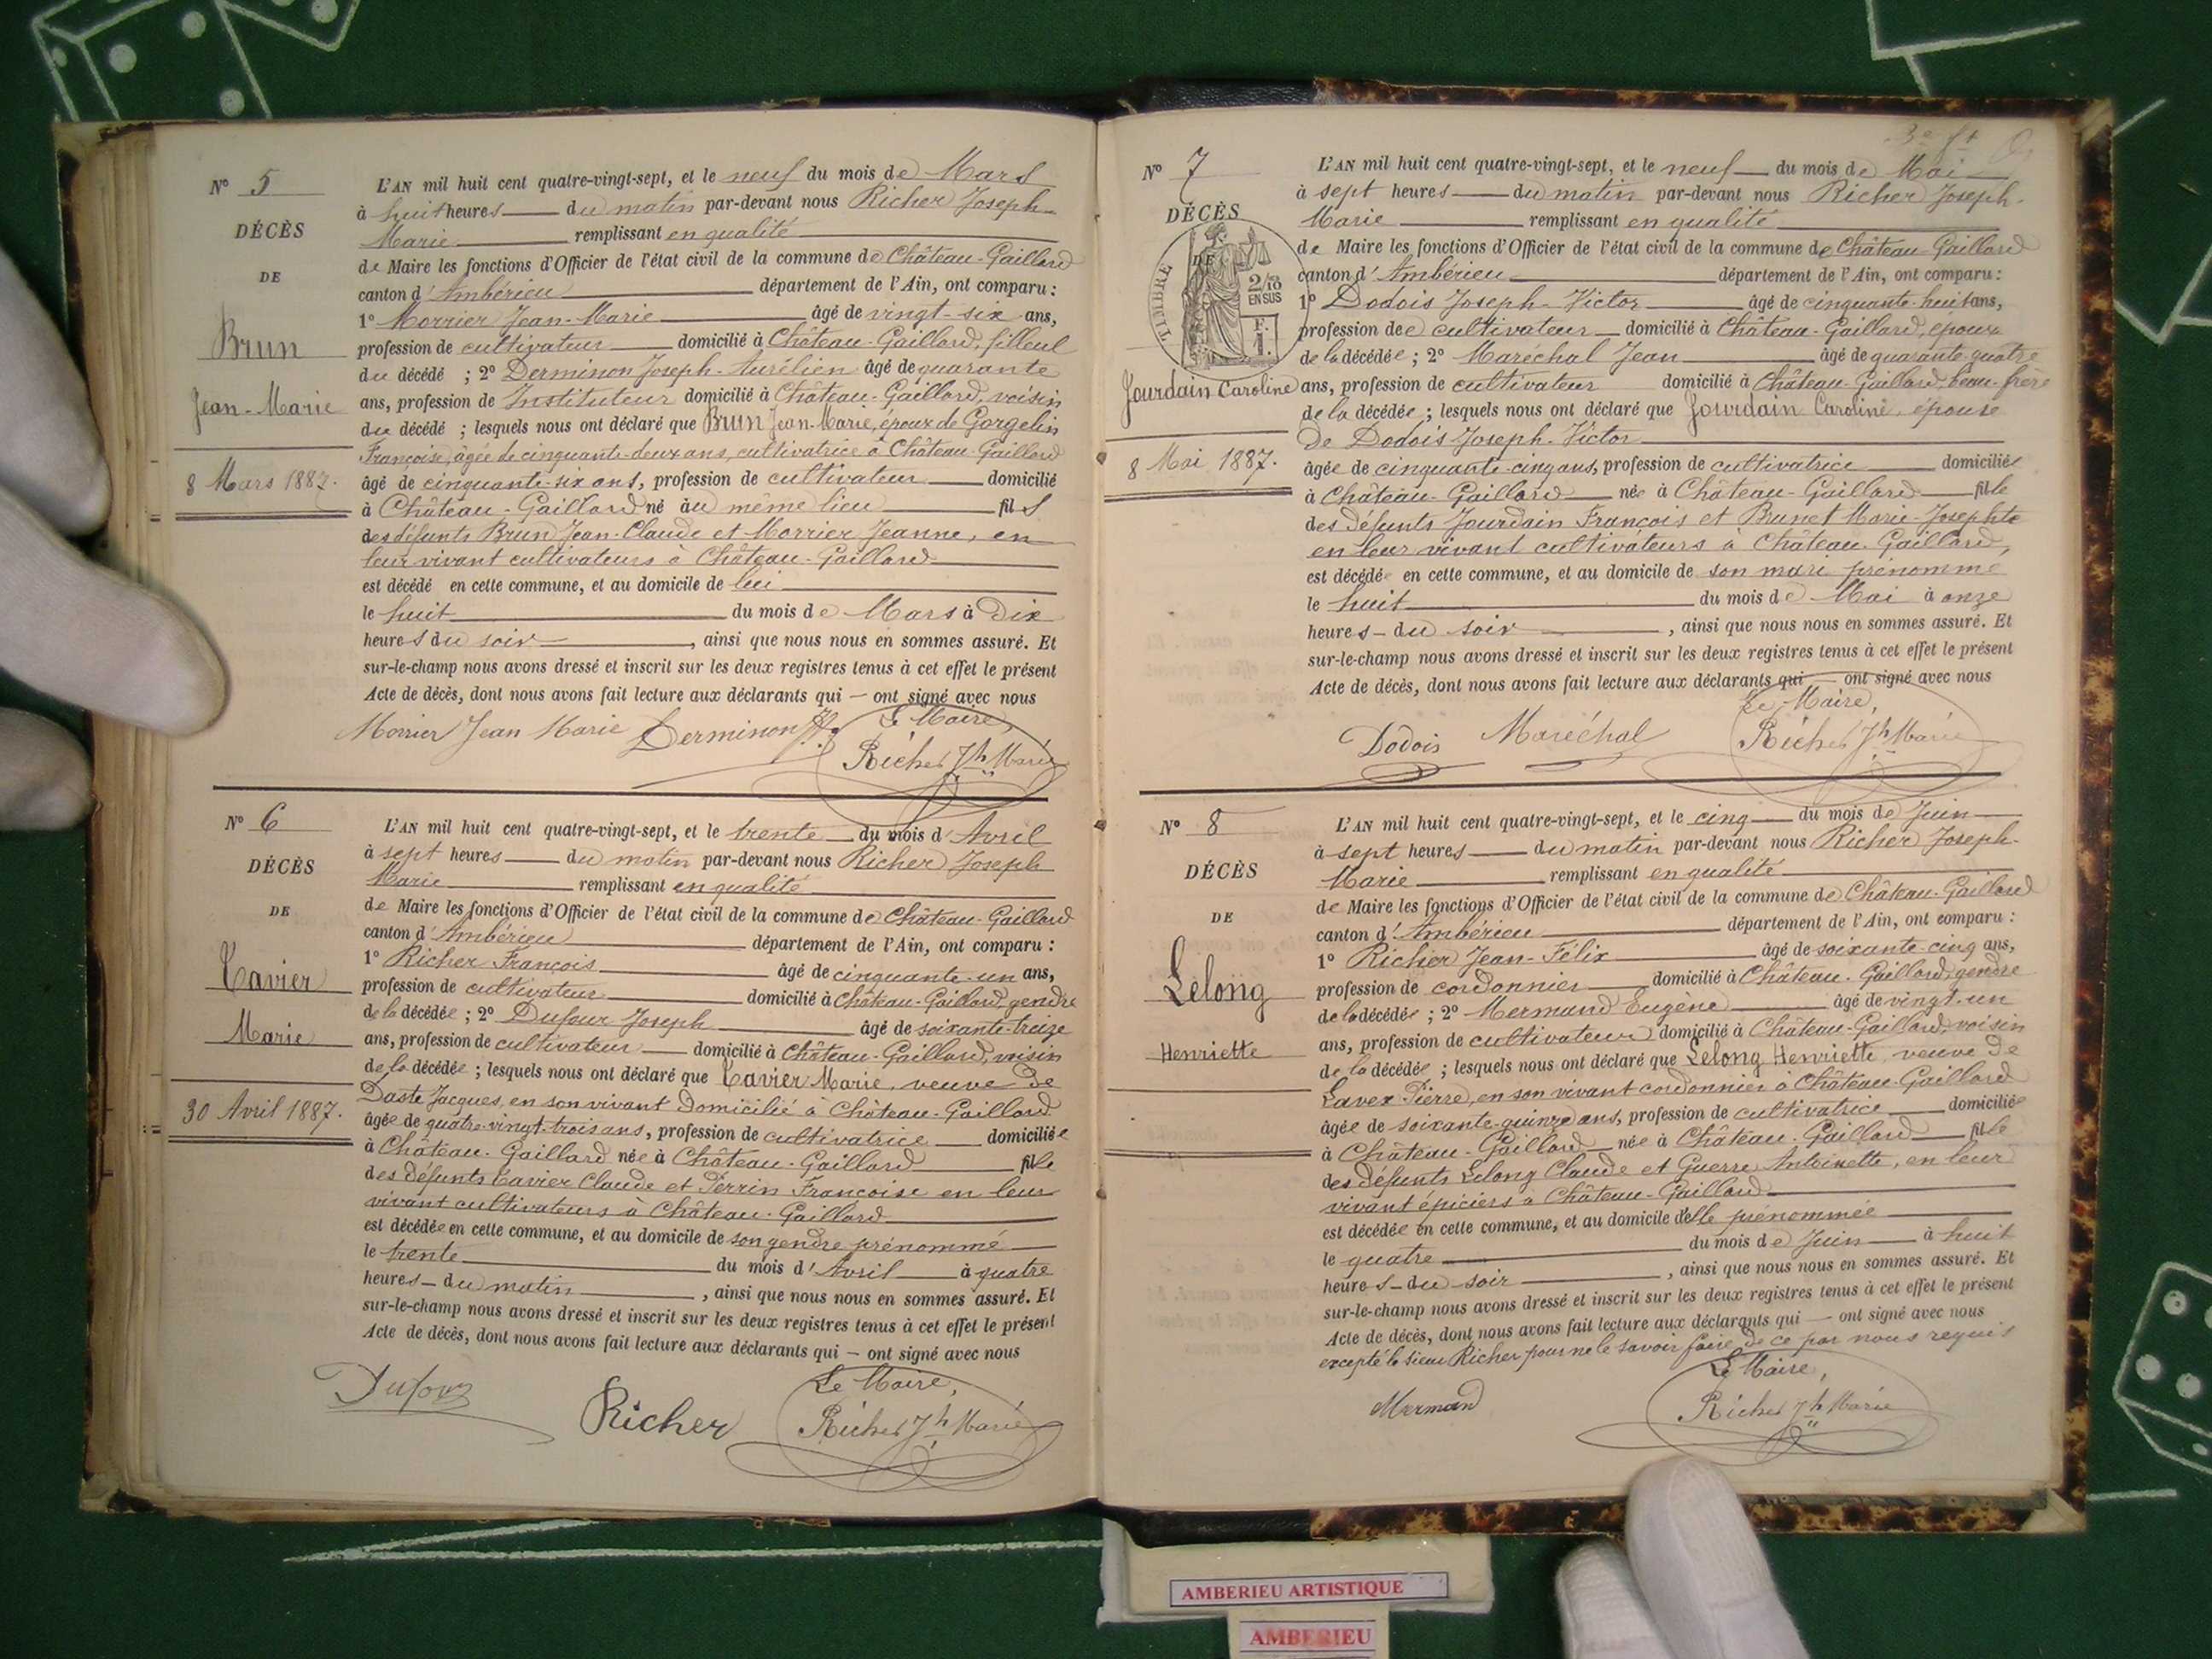 N° 5
DÉCÈS
DE
Brun
Jean-Marie
8 Mars 1887.
L'AN mil huit cent quatre-vingt-sept, et le neuf du mois de Mars
à huit heures du matin par-devant nous Richer Joseph-
Marie remplissant en qualité
de Maire les fonctions d'Officier de l'état civil de la commune de Château-Gaillard
canton d'Ambérieu département de l'Ain, ont comparu :
1° Morrier Jean-Marie âgé de vingt-six ans,
profession de cultivateur domicilié à Château-Gaillard, filleul
du décédé ; 2° Derminon Joseph-Aurélien âgé de quarante
ans, profession de Instituteur domicilié à Château-Gaillard, voisin
du décédé ; lesquels nous ont déclaré que Brun Jean-Marie, époux de Gorgelin
Françoise, âgée de cinquante-deux ans, cultivatrice à Château-Gaillard
âgé de cinquante-six ans, profession de cultivateur domicilié
à Château-Gaillard né au même lieu fils
des défunts Brun Jean-Claude et Morrier Jeanne, en
leur vivant cultivateurs à Château-Gaillard
est décédé en cette commune, et au domicile de lui
le huit du mois de Mars à dix
heures du soir, ainsi que nous nous en sommes assuré. Et
sur-le-champ nous avons dressé et inscrit sur les deux registres tenus à cet effet le présent
Acte de décès, dont nous avons fait lecture aux déclarants qui — ont signé avec nous
Le Maire,
Morrier Jean Marie Derminon Richer Jh Marie
N° 6
DÉCÈS
DE
Tavier
Marie
30 Avril 1887.
L'AN mil huit cent quatre-vingt-sept, et le trente du mois d'Avril
à sept heures du matin par-devant nous Richer Joseph
Marie remplissant en qualité
de Maire les fonctions d'Officier de l'état civil de la commune de Château-Gaillard
canton d'Ambérieu département de l'Ain, ont comparu :
1° Richer François âgé de cinquante-un ans,
profession de cultivateur domicilié à Château-Gaillard, gendre
de la décédée ; 2° Dufour Joseph âgé de soixante-treize
ans, profession de cultivateur domicilié à Château-Gaillard, voisin
de la décédée ; lesquels nous ont déclaré que Tavier Marie, veuve de
Daste Jacques, en son vivant domicilié à Château-Gaillard
âgée de quatre-vingt-trois ans, profession de cultivatrice domiciliée
à Château-Gaillard née à Château-Gaillard fille
des défunts Tavier Claude et Perrin Françoise en leur
vivant cultivateurs à Château-Gaillard
est décédée en cette commune, et au domicile de son gendre prénommé
le trente du mois d'Avril à quatre
heures du matin, ainsi que nous nous en sommes assuré. Et
sur-le-champ nous avons dressé et inscrit sur les deux registres tenus à cet effet le présent
Acte de décès, dont nous avons fait lecture aux déclarants qui — ont signé avec nous
Le Maire,
Dufour Richer Richer Jh Marie
N° 7
DÉCÈS
DE
TIMBRE
2/10
EN SUS
F.
1.
Jourdain Caroline
8 Mai 1887.
L'AN mil huit cent quatre-vingt-sept, et le neuf du mois de Mai
à sept heures du matin par-devant nous Richer Joseph-
Marie remplissant en qualité
de Maire les fonctions d'Officier de l'état civil de la commune de Château-Gaillard
canton d'Ambérieu département de l'Ain, ont comparu :
1° Dodois Joseph-Victor âgé de cinquante-huit ans,
profession de cultivateur domicilié à Château-Gaillard, époux
de la décédée ; 2° Maréchal Jean âgé de quarante-quatre
ans, profession de cultivateur domicilié à Château-Gaillard, beau-frère
de la décédée ; lesquels nous ont déclaré que Jourdain Caroline, épouse
de Dodois Joseph-Victor
âgée de cinquante-cinq ans, profession de cultivatrice domiciliée
à Château-Gaillard née à Château-Gaillard fille
des défunts Jourdain François et Brunet Marie-Josephte
en leur vivant cultivateurs à Château-Gaillard,
est décédée en cette commune, et au domicile de son mari prénommé
le huit du mois de Mai à onze
heures du soir, ainsi que nous nous en sommes assuré. Et
sur-le-champ nous avons dressé et inscrit sur les deux registres tenus à cet effet le présent
Acte de décès, dont nous avons fait lecture aux déclarants qui — ont signé avec nous
Le Maire,
Dodois Maréchal Richer Jh Marie
N° 8
DÉCÈS
DE
Lelong
Henriette
L'AN mil huit cent quatre-vingt-sept, et le cinq du mois de Juin
à sept heures du matin par-devant nous Richer Joseph-
Marie remplissant en qualité
de Maire les fonctions d'Officier de l'état civil de la commune de Château-Gaillard
canton d'Ambérieu département de l'Ain, ont comparu :
1° Richer Jean-Félix âgé de soixante-cinq ans,
profession de cordonnier domicilié à Château-Gaillard, gendre
de la décédée ; 2° Mermand Eugène âgé de vingt-un
ans, profession de cultivateur domicilié à Château-Gaillard, voisin
de la décédée ; lesquels nous ont déclaré que Lelong Henriette, veuve de
Lavex Pierre, en son vivant cordonnier à Château-Gaillard
âgée de soixante-quinze ans, profession de cultivatrice domiciliée
à Château-Gaillard née à Château-Gaillard fille
des défunts Lelong Claude et Guerre Antoinette, en leur
vivant épiciers à Château-Gaillard
est décédée en cette commune, et au domicile d'elle prénommée
le quatre du mois de Juin à huit
heures du soir, ainsi que nous nous en sommes assuré. Et
sur-le-champ nous avons dressé et inscrit sur les deux registres tenus à cet effet le présent
Acte de décès, dont nous avons fait lecture aux déclarants qui — ont signé avec nous
excepté le sieur Richer pour ne le savoir faire de ce par nous requis
Le Maire,
Mermand Richer Jh Marie
AMBERIEU ARTISTIQUE
AMBERIEU